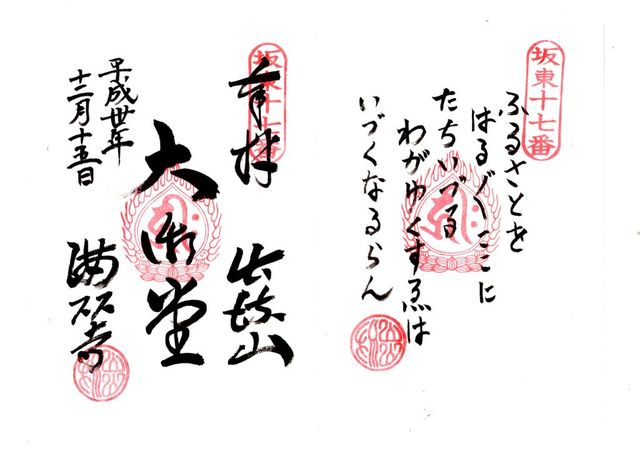 坂東十七番
ふるさとを
はる〲ここに
たちいづる
わがゆくすゑは
いづくなるらん
坂東十七番
奉拝 出流山
大御堂
平成卅年
十二月十五日
満願寺